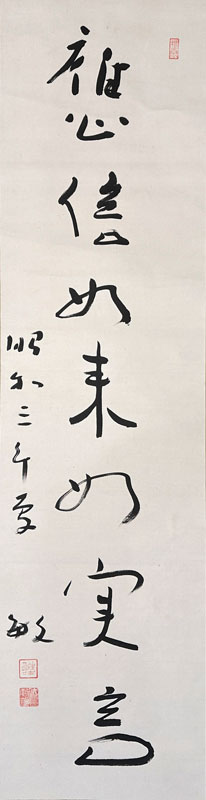 應信如来如実言
昭和三年夏 敏